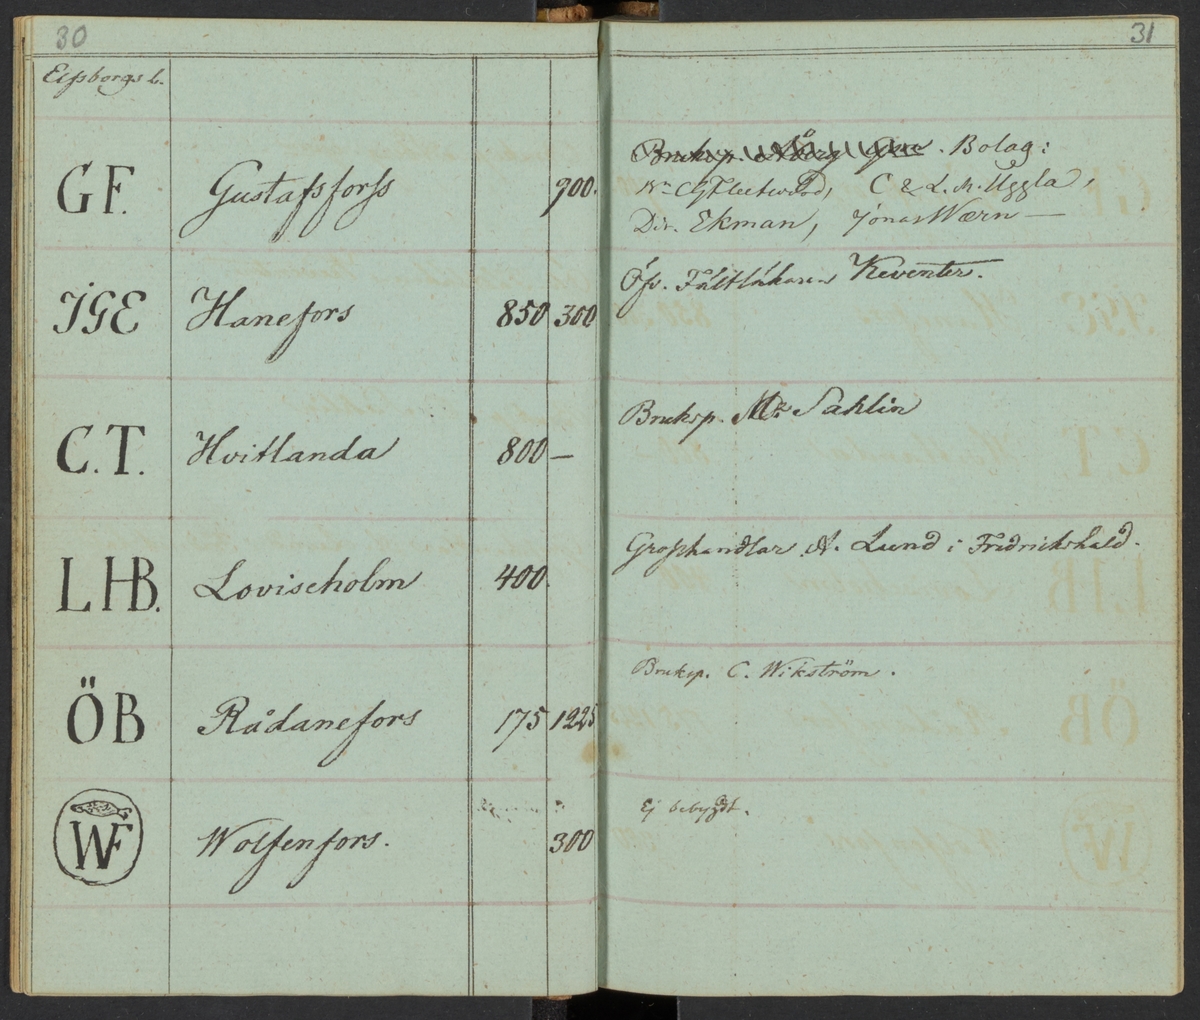 30
31
Elfsborgs l.
GF. Gustafsforss 900. Bruksp. Åberg . Bolag:
Wm CG Fleetwood, C & L. M. Uggla,
Dir. Ekman, Jonas Wærn —
IGE Hanefors 850 300 Öfv. Fältläkaren Keventer.
C.T. Hvitlanda 800 — Bruksp. Sahlin
LHB. Loviseholm 400 Grosshandlar A. Lund i Fredrikshald.
ÖB Rådanefors 175 1225 Bruksp. C. Wikström.
WF Wolfenfors. 300 Ej bebygdt.